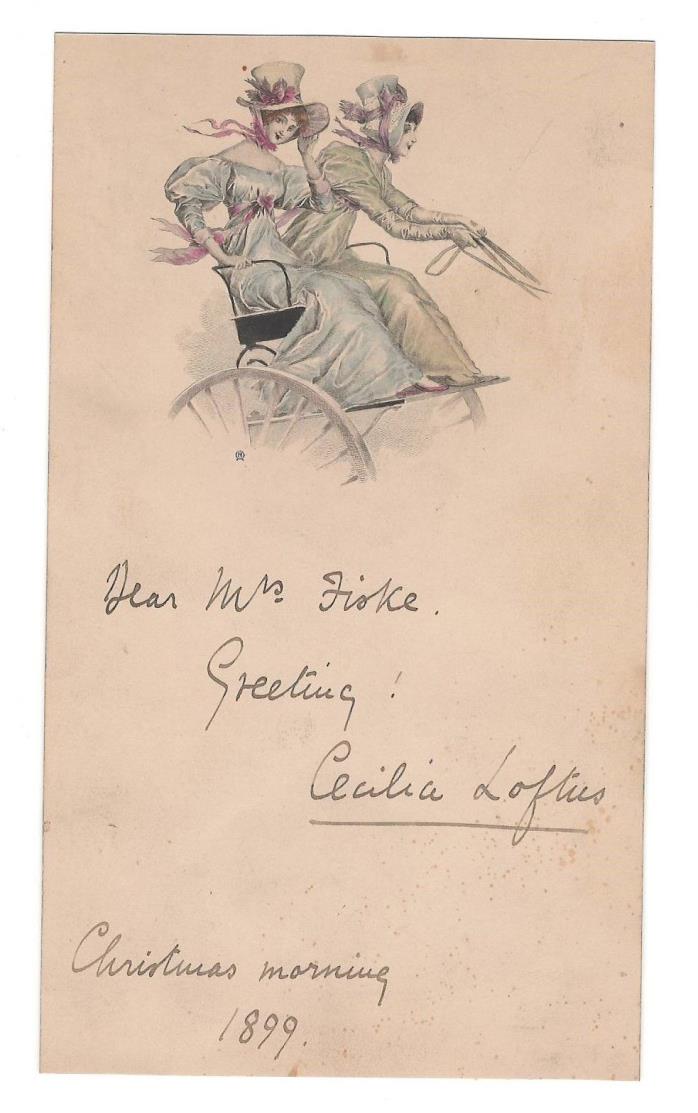 Dear Mrs Fiske.
Greeting!
Cecilia Loftus
Christmas morning
1899.